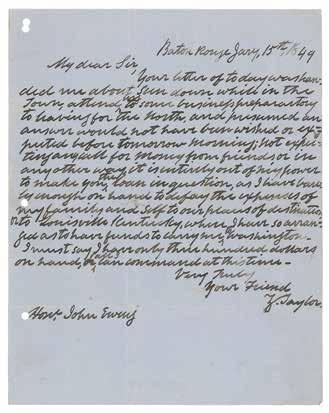 Baton Rouge Jany, 15th, 1849
My dear Sir,
Your letter of today was han-
ded me about Sun down while in the
Town, attending to some business preparatory
to leaving for the north, and presumed an
answer would not have been wished or ex-
pected before tomorrow morning; not expec-
ting any call for money from friends, or in
any other way, it is entirely out of my power
to make you the loan in question, as I have bare-
ly enough on hand to defray the expenses of
my family and Self to our places of destination
or to Louisville Kentucky, where I have so arran-
ged as to have funds to carry me to Washington.
I must say I have only three hundred dollars
on hand, or can command at this time—
Very Truly
Your Friend
Z. Taylor
Honl. John Ewing